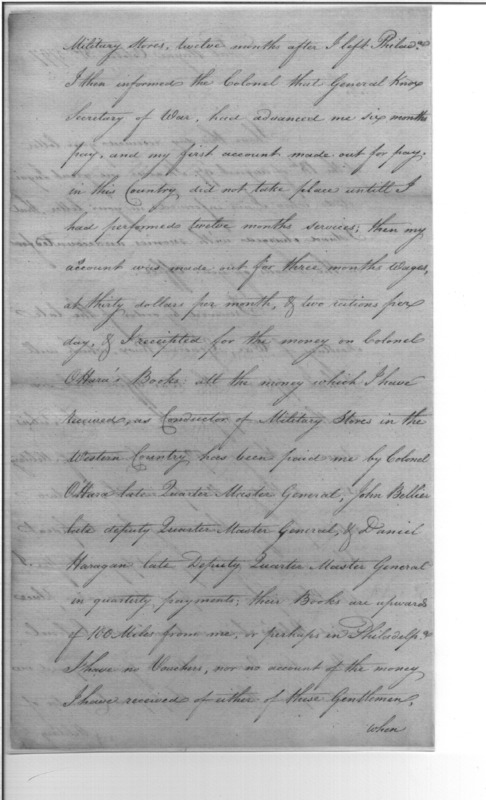 Military Stores, twelve months after I left Philad.a
I then informed the Colonel that General Knox
Secretary of War, had advanced me six months
pay, and my first account made out for pay;
in this Country did not take place untill I
had performed twelve months services; then my
account was made out for three months Wages,
at thirty dollars per month, & two rations per
day, & I receipted for the money on Colonel
OHara's Books: all the money which I have
received, as Conductor of Military Stores in the
Western Country, has been paid me by Colonel
OHara late Quarter Master General, John Bellier
late deputy Quarter Master General, & Daniel
Haragan late Deputy Quarter Master General
in quarterly payments; their Books are upwards
of 100 Miles from me, or perhaps in Philadelp.a
I have no Vouchers, nor no account of the money
I have received of either of these Gentlemen,
when